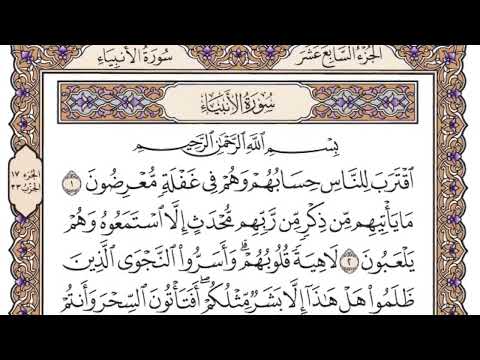 الجزء السابع عشر
سورة الأنبياء
سورة الأنبياء
بِسْمِ اللَّهِ الرَّحْمَٰنِ الرَّحِيمِ
ٱقْتَرَبَ لِلنَّاسِ حِسَابُهُمْ وَهُمْ فِى غَفْلَةٍ مُّعْرِضُونَ ١
مَا يَأْتِيهِم مِّن ذِكْرٍ مِّن رَّبِّهِم مُّحْدَثٍ إِلَّا ٱسْتَمَعُوهُ وَهُمْ
يَلْعَبُونَ ٢ لَاهِيَةً قُلُوبُهُمْ ۗ وَأَسَرُّوا۟ ٱلنَّجْوَى ٱلَّذِينَ
ظَلَمُوا۟ هَلْ هَٰذَآ إِلَّا بَشَرٌ مِّثْلُكُمْ ۖ أَفَتَأْتُونَ ٱلسِّحْرَ وَأَنتُمْ
الجزء ١٧
الحزب ٣٣